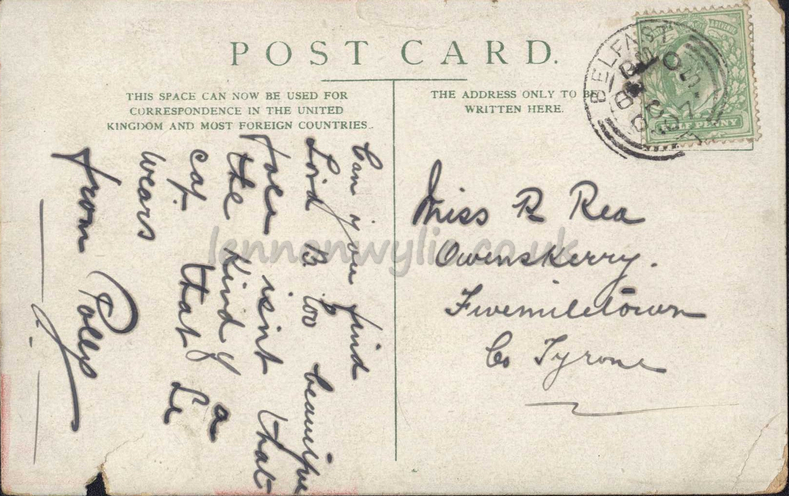 POST CARD.
THIS SPACE CAN NOW BE USED FOR
CORRESPONDENCE IN THE UNITED
KINGDOM AND MOST FOREIGN COUNTRIES.
THE ADDRESS ONLY TO BE
WRITTEN HERE.
BELFAST
HALFPENNY
Can you find
Lord B too beautiful
for isnt that
the kind of a
cap that Le
wears
from Polly
Miss R Rea
Owenskerry.
Fivemiletown
Co Tyrone
lennonwylie.co.uk